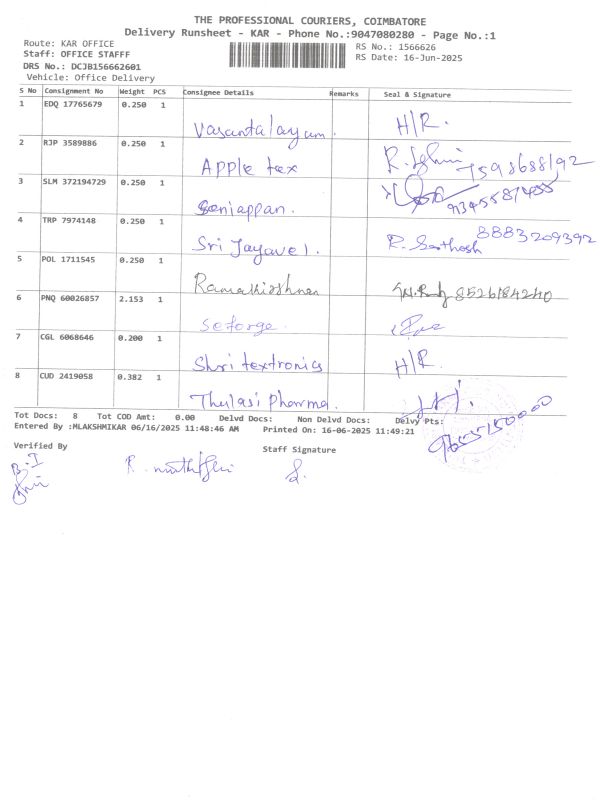 THE PROFESSIONAL COURIERS, COIMBATORE
Delivery Runsheet - KAR - Phone No.:9047080280 - Page No.:1
Route: KAR OFFICE
Staff: OFFICE STAFFF
RS No.: 1566626
DRS No.: DCJB156662601
RS Date: 16-Jun-2025
Vehicle: Office Delivery
S No Consignment No Weight PCS Consignee Details Remarks Seal & Signature
1 EDQ 17765679 0.250 1 Vasantalayam. H/R.
2 RJP 3589886 0.250 1 Apple tex 7598688192
3 SLM 372194729 0.250 1 Seniappan.
4 TRP 7974148 0.250 1 Sri Jayavel. R. Sathosh 8883209392
5 POL 1711545 0.250 1 Ramakrishnan 8526184240
6 PNQ 60026857 2.153 1 Seforge.
7 CGL 6068646 0.200 1 Shri textronics H/R.
8 CUD 2419058 0.382 1 Thulasi pharma.
Tot Docs: 8 Tot COD Amt: 0.00 Delvd Docs: Non Delvd Docs: Delvy Pts:
Entered By :MLAKSHMIKAR 06/16/2025 11:48:46 AM Printed On: 16-06-2025 11:49:21
9655150000
Verified By
Staff Signature